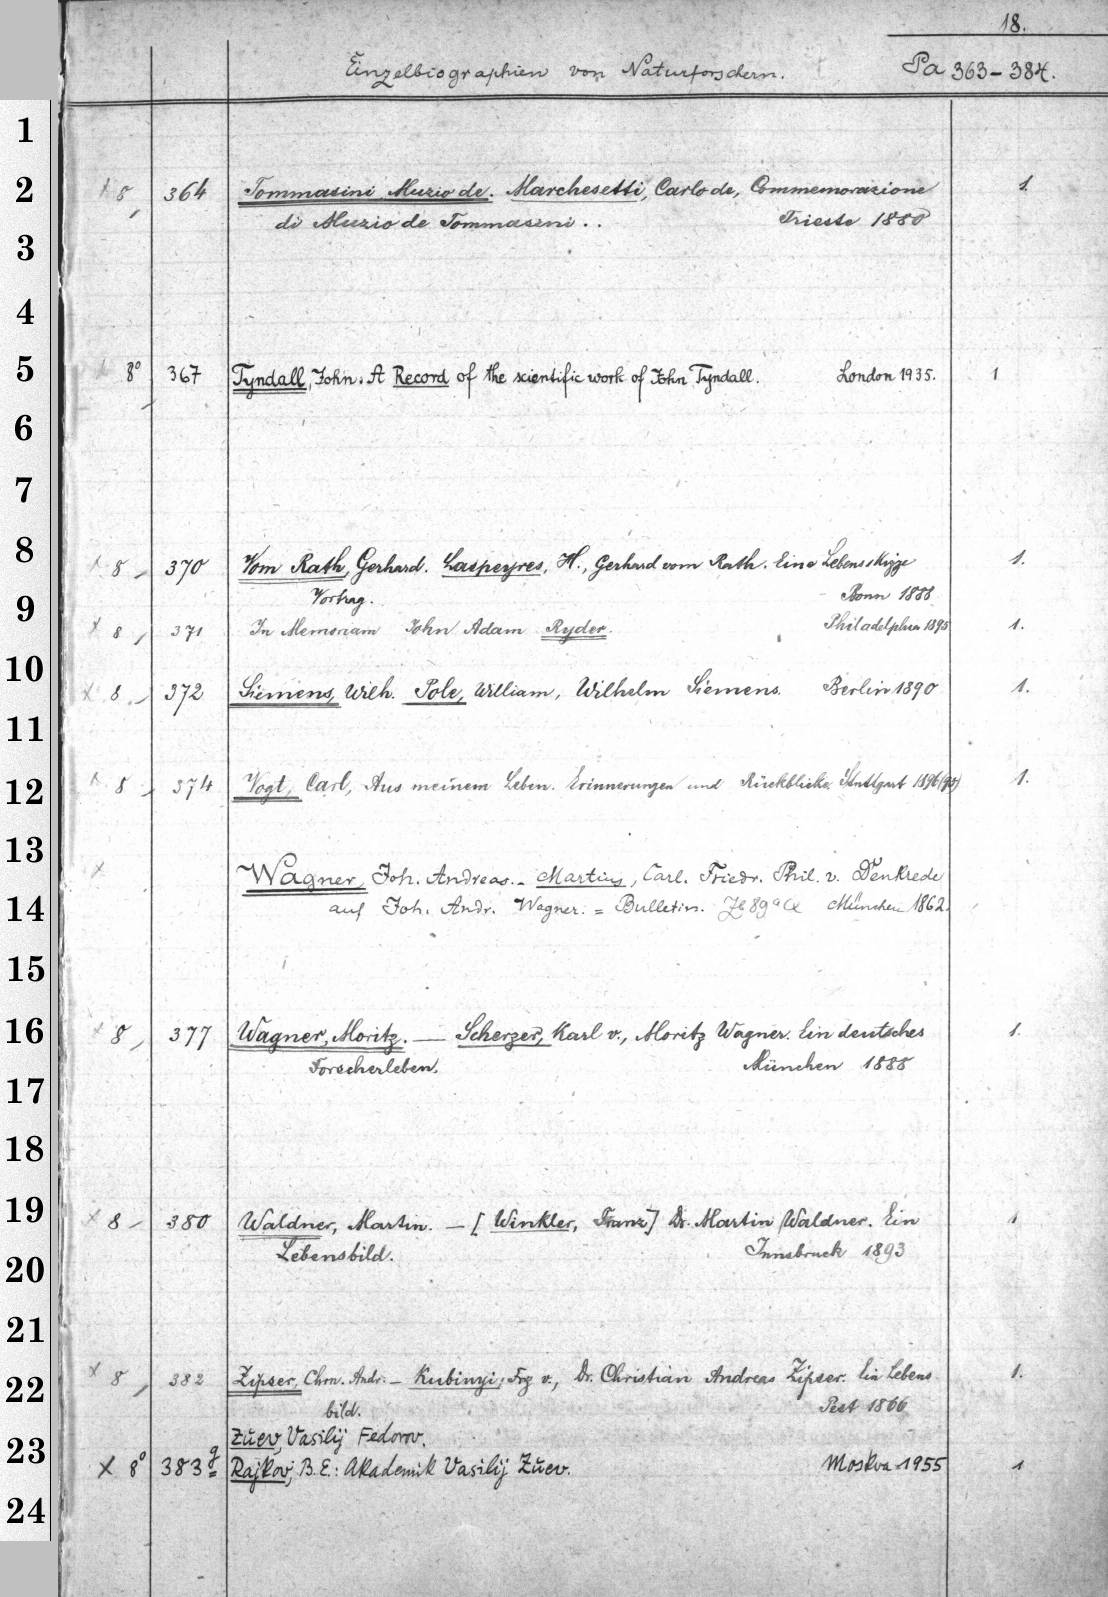 18.
Einzelbiographien von Naturforschern. Pa 363-384.
1
2 x 8, 364 Tommasini Muzio de. Marchesetti, Carlo de, Commemorazione 1.
di Muzio de Tommasini . . Trieste 1880
3
4
5 8° 367 Tyndall, John: A Record of the scientific work of John Tyndall. London 1935. 1
6
7
8 x 8, 370 Vom Rath, Gerhard. Laspeyres, H., Gerhard vom Rath. Eine Lebensskizze 1.
Vortrag. Bonn 1888
9 x 8, 371 In Memoriam John Adam Ryder. Philadelphia 1895 1.
10 x 8, 372 Siemens, Wilh. Pole, William, Wilhelm Siemens. Berlin 1890 1.
11
12 x 8, 374 Vogt, Carl, Aus meinem Leben. Erinnerungen und Rückblicke. Stuttgart 1896 1.
13 x Wagner, Joh. Andreas.- Martius, Carl. Friedr. Phil. v. Denkrede
14 auf Joh. Andr. Wagner. = Bulletin. München 1862.
15
16 x 8, 377 Wagner, Moritz. — Scherzer, Karl v., Moritz Wagner. Ein deutsches 1.
Forscherleben. München 1888
17
18
19 x 8, 380 Waldner, Martin. — [Winkler, Franz] Dr. Martin Waldner. Ein 1
20 Lebensbild. Innsbruck 1893
21
22 x 8, 382 Zipser, Chrn. Andr.- Kubinyi, Frz v., Dr. Christian Andreas Zipser. Ein Lebens 1.
bild. Pest 1866
Zuev, Vasilij Fedorov.
23 x 8° 383 g Rajkov, B.E.: Akademik Vasilij Zuev. Moskva 1955 1
24